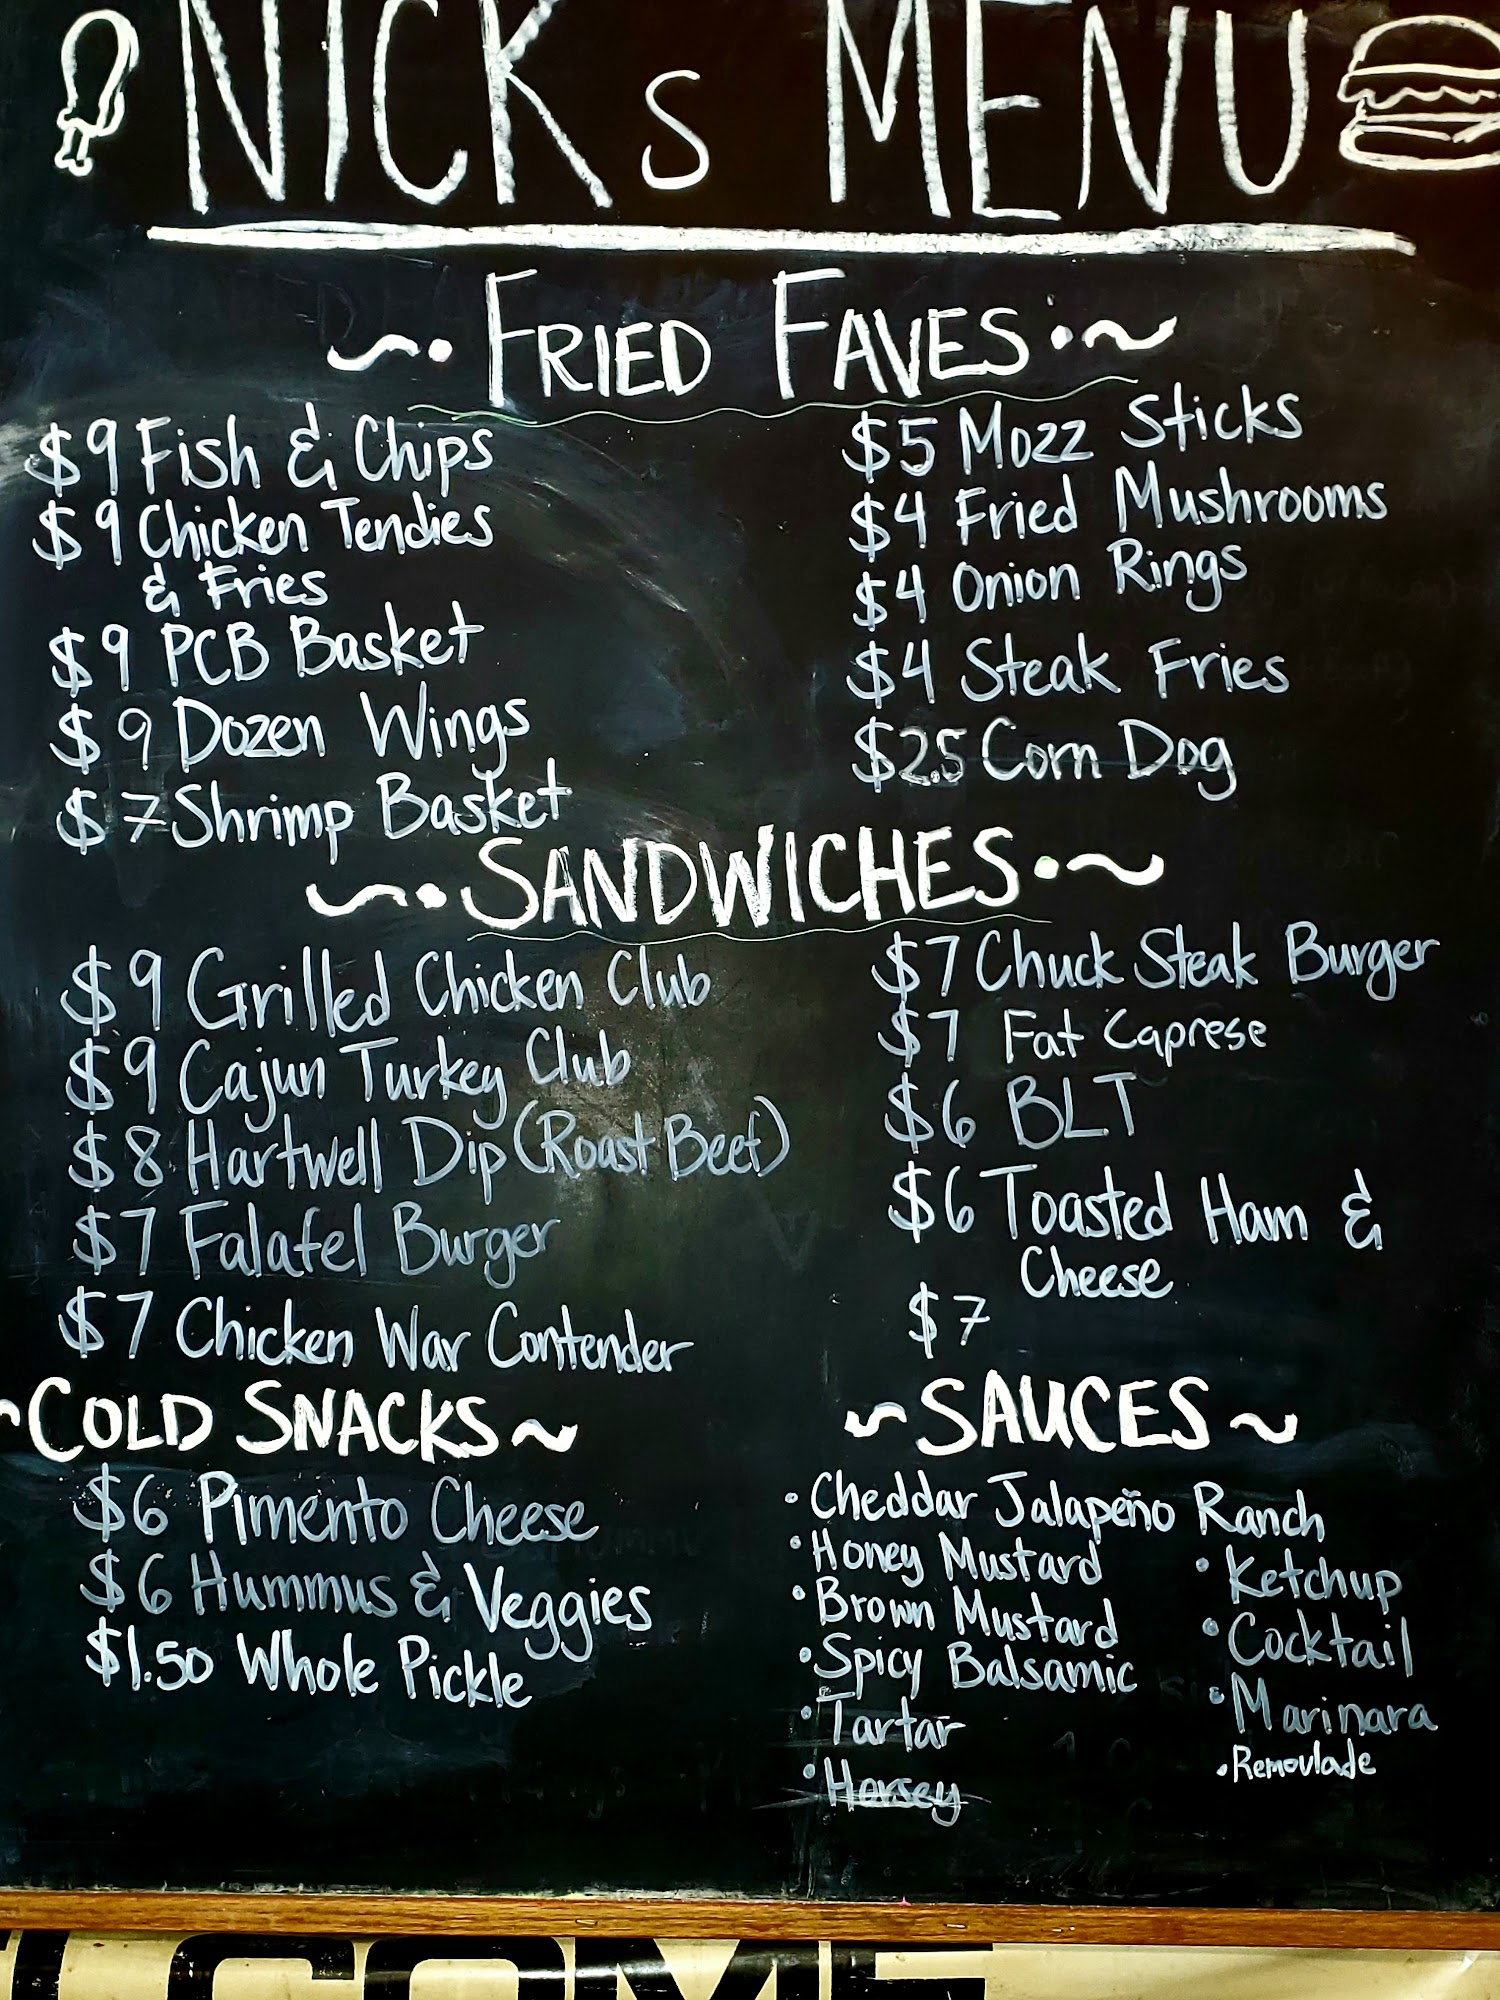 NICKs MENU
FRIED FAVES
$9 Fish & Chips
$9 Chicken Tendies
& Fries
$9 PCB Basket
$9 Dozen Wings
$7 Shrimp Basket
$5 Mozz Sticks
$4 Fried Mushrooms
$4 Onion Rings
$4 Steak Fries
$2.5 Corn Dog
SANDWICHES
$9 Grilled Chicken Club
$9 Cajun Turkey Club
$8 Hartwell Dip (Roast Beef)
$7 Falafel Burger
$7 Chicken War Contender
$7 Chuck Steak Burger
$7 Fat Caprese
$6 BLT
$6 Toasted Ham &
Cheese
$7
~COLD SNACKS~
$6 Pimento Cheese
$6 Hummus & Veggies
$1.50 Whole Pickle
~SAUCES~
• Cheddar Jalapeño Ranch
• Honey Mustard
• Brown Mustard
• Spicy Balsamic
• Tartar
• Horsey
• Ketchup
• Cocktail
• Marinara
• Remoulade